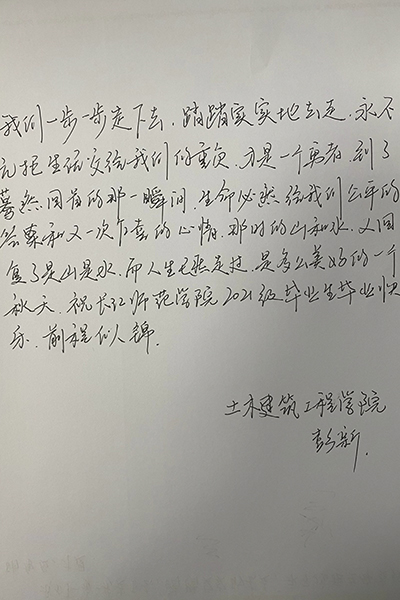 我们一步一步走下去，踏踏实实地去走，永不
抗拒生活交给我们的重负，才是一个勇者。到了
蓦然回首的那一瞬间，生命必然给我们公平的
答案和又一次乍喜的心情，那时的山和水，又回
复了是山是水，而人生已然走过，是多么美好的一个
秋天。祝长江师范学院2021级毕业生毕业快
乐，前程似锦。
土木建筑工程学院
彭新